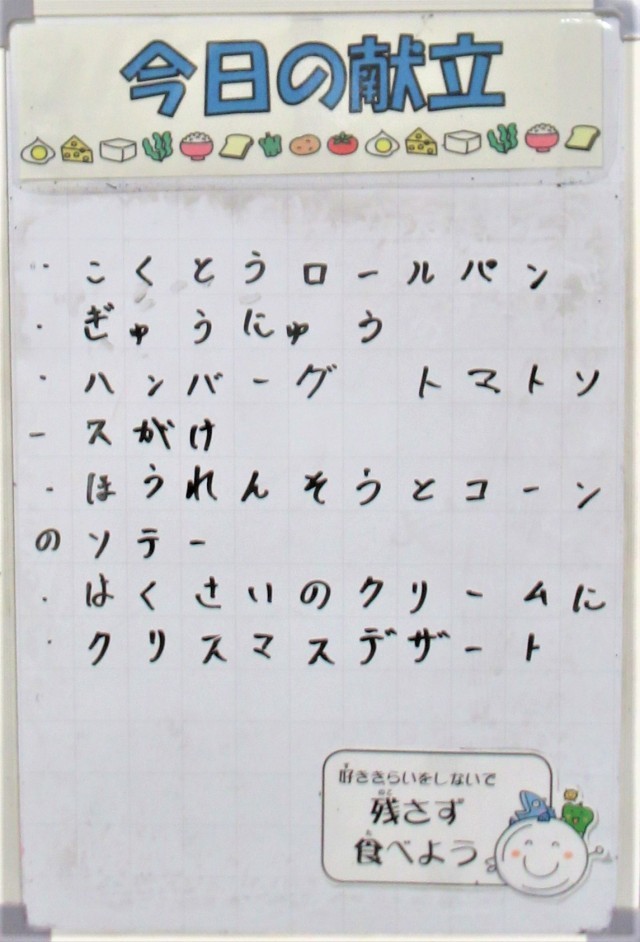 今日の献立
・こくとうロールパン
・ぎゅうにゅう
・ハンバーグ　トマトソ
ースがけ
・ほうれんそうとコーン
のソテー
・はくさいのクリームに
・クリスマスデザート
好ききらいをしないで
残さず
食べよう